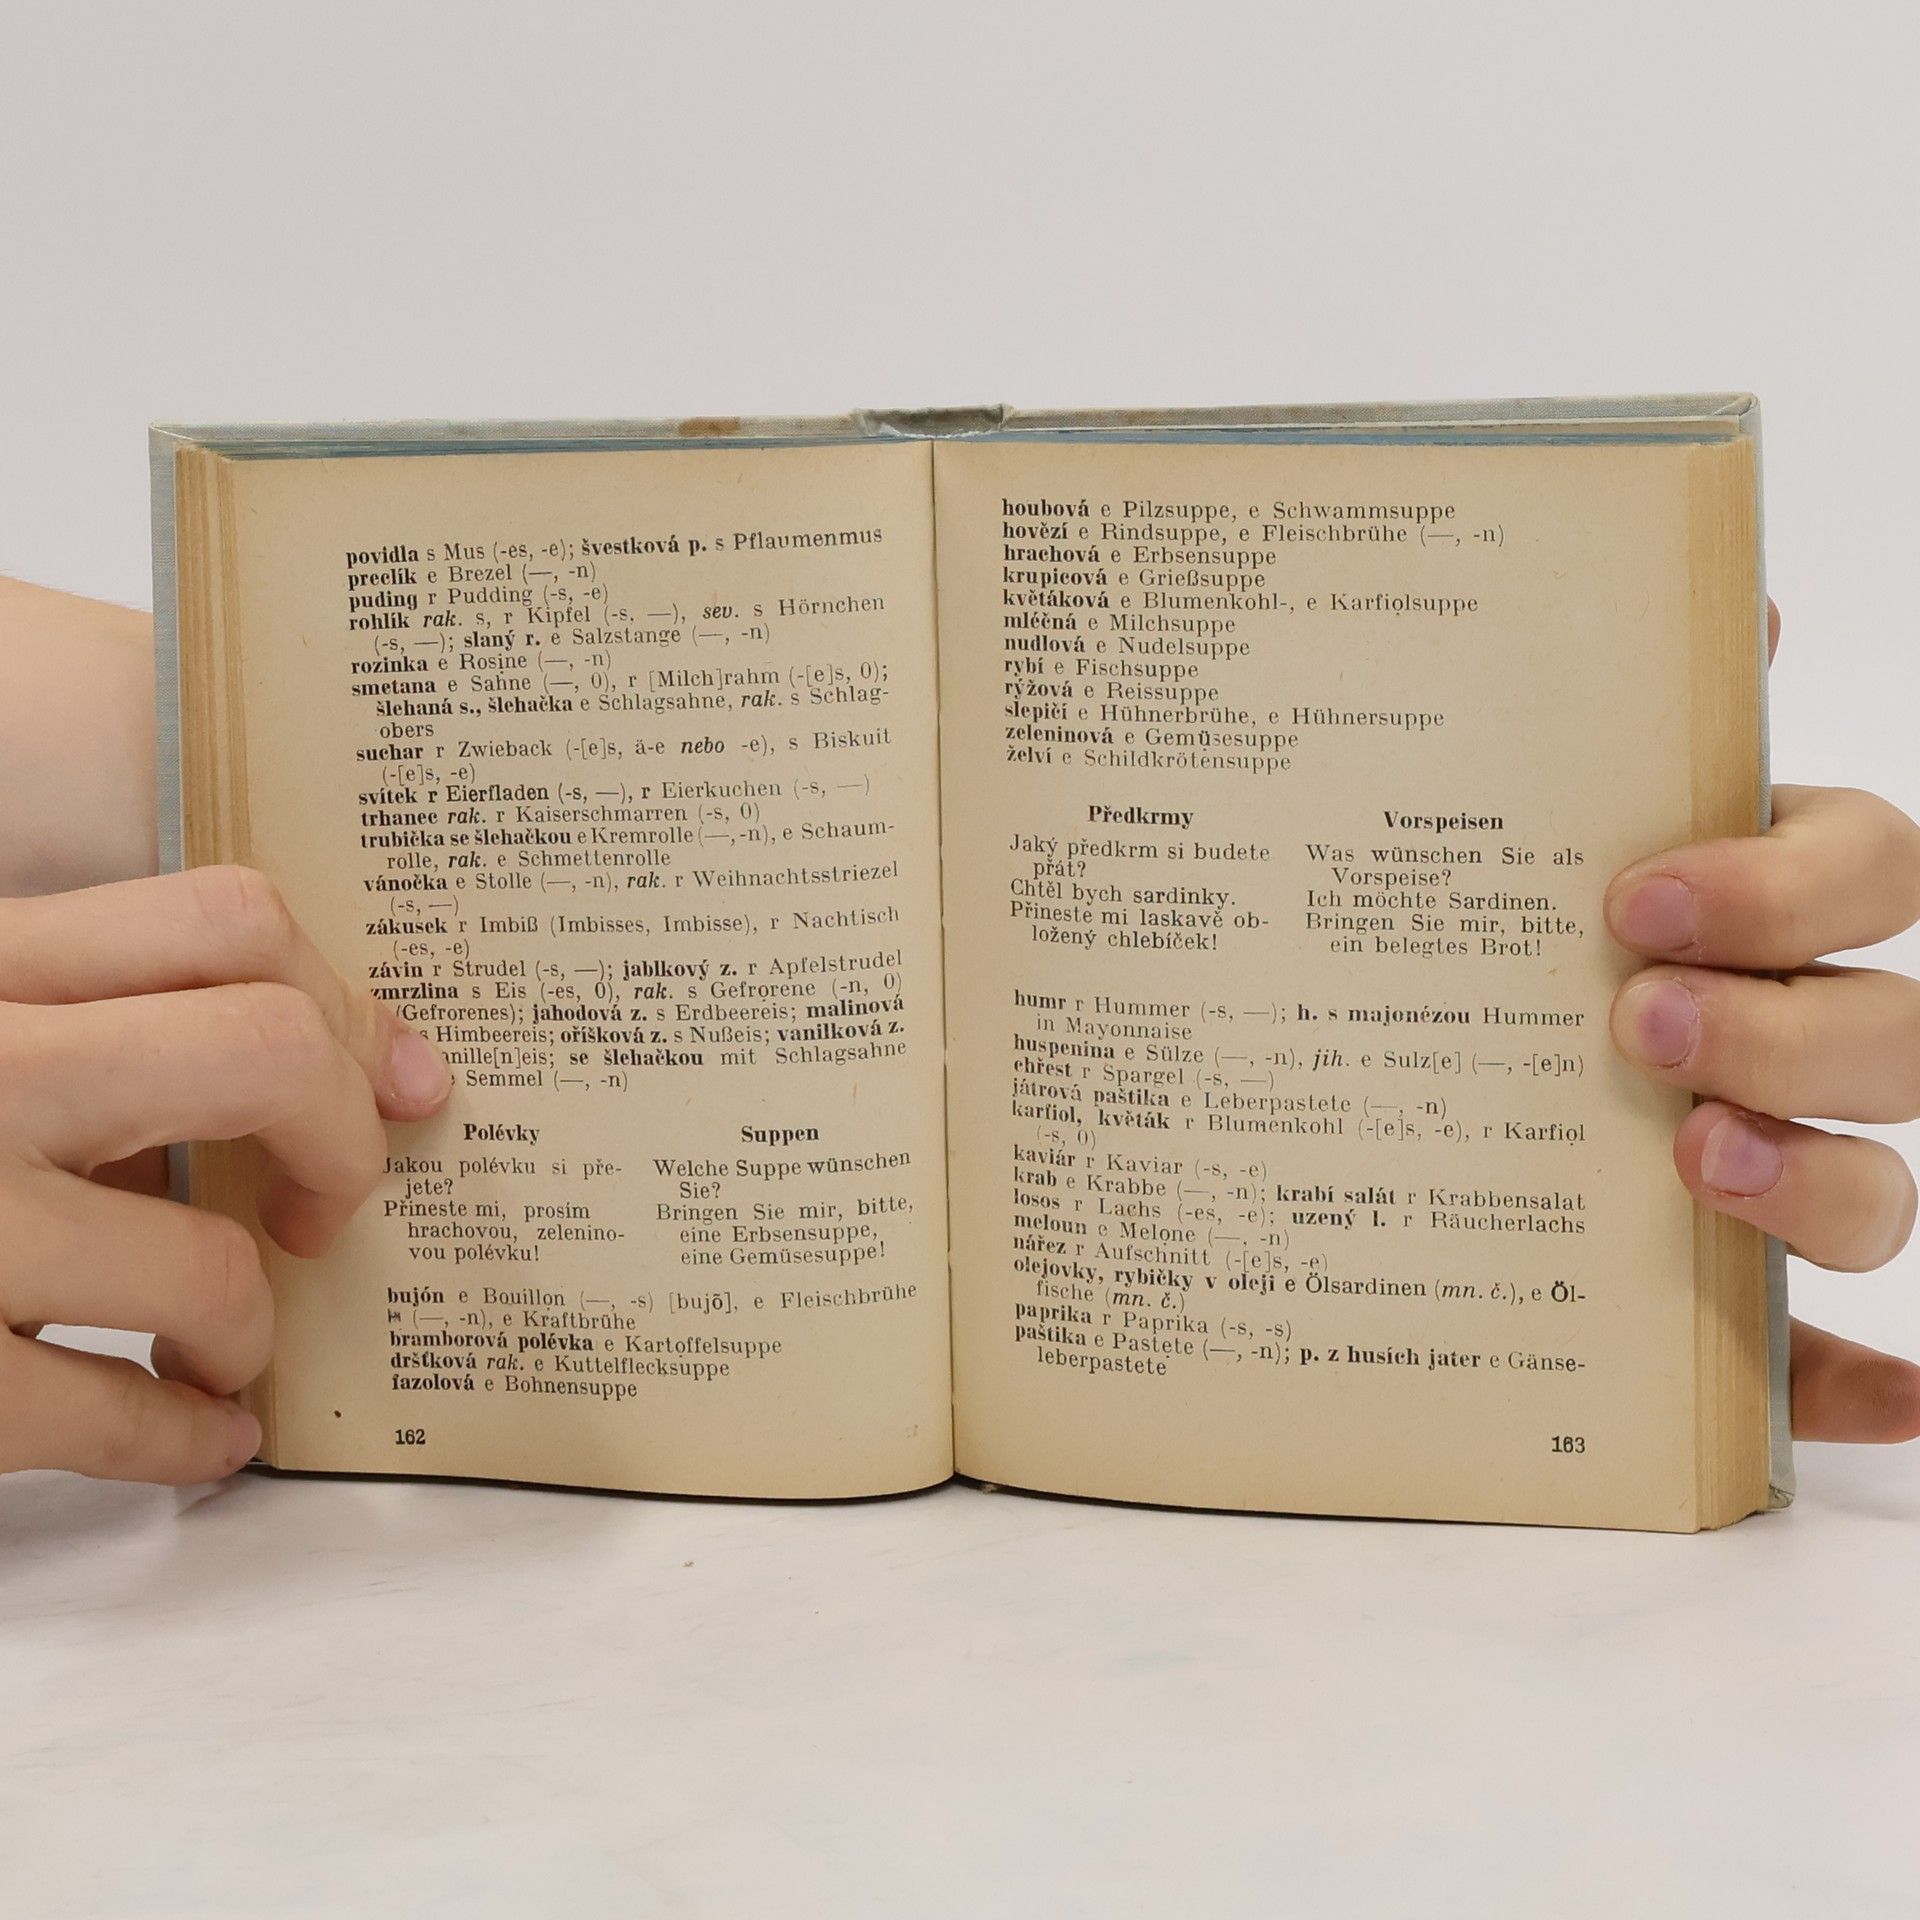 povidla s Mus (-es, -e); švestková p. s Pflaumenmus
preclík e Brezel (—, -n)
puding r Pudding (-s, -e)
rohlík rak. s, r Kipfel (-s, —), sev. s Hörnchen
(-s, —); slaný r. e Salzstange (—, -n)
rozinka e Rosine (—, -n)
smetana e Sahne (—, 0), r [Milch]rahm (-[e]s, 0);
šlehaná s., šlehačka e Schlagsahne, rak. s Schlag-
obers
suchar r Zwieback (-[e]s, ä-e nebo -e), s Biskuit
(-[e]s, -e)
svítek r Eierfladen (-s, —), r Eierkuchen (-s, —)
trhanec rak. r Kaiserschmarren (-s, 0)
trubička se šlehačkou e Kremrolle (—, -n), e Schaum-
rolle, rak. e Schmettenrolle
vánočka e Stolle (—, -n), rak. r Weihnachtsstriezel
(-s, —)
zákusek r Imbiß (Imbisses, Imbisse), r Nachtisch
(-es, -e)
závin r Strudel (-s, —); jablkový z. r Apfelstrudel
zmrzlina s Eis (-es, 0), rak. s Gefrorene (-n, 0)
(Gefrorenes); jahodová z. s Erdbeereis; malinová
s Himbeereis; oříšková z. s Nußeis; vanilková z.
anille[n]eis; se šlehačkou mit Schlagsahne
Semmel (—, -n)
Polévky
Jakou polévku si pře-
jete?
Přineste mi, prosím
hrachovou, zelenino-
vou polévku!
Suppen
Welche Suppe wünschen
Sie?
Bringen Sie mir, bitte,
eine Erbsensuppe,
eine Gemüsesuppe!
bujón e Bouillon (—, -s) [bujõ], e Fleischbrühe
(—, -n), e Kraftbrühe
bramborová polévka e Kartoffelsuppe
dršťková rak. e Kuttelflecksuppe
fazolová e Bohnensuppe
162
houbová e Pilzsuppe, e Schwammsuppe
hovězí e Rindsuppe, e Fleischbrühe (—, -n)
hrachová e Erbsensuppe
krupicová e Grießsuppe
květáková e Blumenkohl-, e Karfiolsuppe
mléčná e Milchsuppe
nudlová e Nudelsuppe
rybí e Fischsuppe
rýžová e Reissuppe
slepičí e Hühnerbrühe, e Hühnersuppe
zeleninová e Gemüsesuppe
želví e Schildkrötensuppe
Předkrmy
Jaký předkrm si budete
přát?
Chtěl bych sardinky.
Přineste mi laskavě ob-
ložený chlebíček!
Vorspeisen
Was wünschen Sie als
Vorspeise?
Ich möchte Sardinen.
Bringen Sie mir, bitte,
ein belegtes Brot!
humr r Hummer (-s, —); h. s majonézou Hummer
in Mayonnaise
huspenina e Sülze (—, -n), jih. e Sulz[e] (—, -[e]n)
chřest r Spargel (-s, —)
játrová paštika e Leberpastete (—, -n)
karfiol, květák r Blumenkohl (-[e]s, -e), r Karfiol
(-s, 0)
kaviár r Kaviar (-s, -e)
krab e Krabbe (—, -n); krabí salát r Krabbensalat
losos r Lachs (-es, -e); uzený l. r Räucherlachs
meloun e Melone (—, -n)
nářez r Aufschnitt (-[e]s, -e)
olejovky, rybičky v oleji e Ölsardinen (mn. č.), e Öl-
fische (mn. č.)
paprika r Paprika (-s, -s)
paštika e Pastete (—, -n); p. z husích jater e Gänse-
leberpastete
163